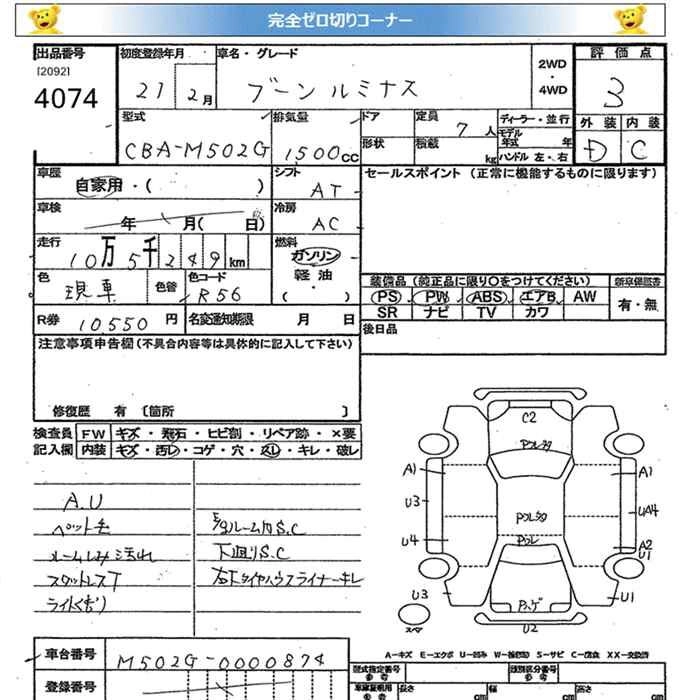 完全ゼロ切りコーナー
出品番号 初度登録年月 車名・グレード 2WD ・ 4WD 評価点
[2092]
4074 21 2月 ブーン ルミナス 3
型式 排気量 ドア 定員 7人 ディーラー・並行 外装 内装
CBA-M502G 1500cc 形状 積載 kg モデル年式 年 D C
ハンドル 左・右
車歴 自家用・( ) シフト AT セールスポイント (正常に機能するものに限ります)
車検 年 月( 日) 冷房 AC
走行 10万5千249km 燃料 ガソリン
軽油
・( )
色 現車 色替 色コード R56 装備品 (純正品に限り○をつけてください) 新車保証書
PS PW ABS エアB AW 有・無
SR ナビ TV カワ
R券 10550円 名変通知期限 月 日 後日品
注意事項申告欄 (不具合内容等は具体的に記入して下さい)
修復歴 有 〔箇所 〕
検査員 FW キズ・飛石・ヒビ割・リペア跡・×要
記入欄 内装 キズ・汚レ・コゲ・穴・スレ・キレ・破レ
A.U
ペット毛 ルーム内S.C
ルームしみ汚れ 下廻りS.C
スタッドレスT 右下タイヤハウスライナーキレ
ライト
C2
A1 A1
U3 UA4
U4 A2
U1
U3 U1
スペア U2
A-キズ E-エクボ U-凹み W-補修跡 S-サビ C-腐食 XX-交換済
車台番号 M502G-0000874 型式指定番号 類別区分番号
参考 参考
登録番号 長さ cm 幅 cm 高さ cm